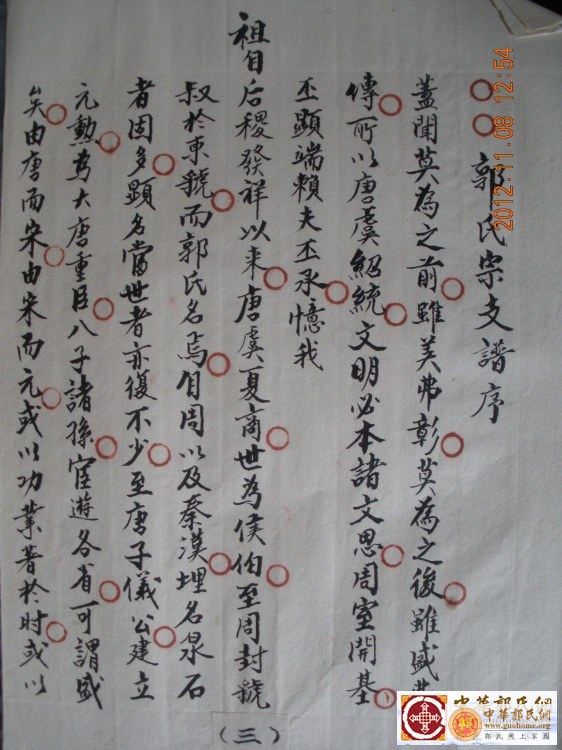 郭氏宗支譜序
蓋聞莫為之前雖美弗彰莫為之後雖盛弗
傳所以唐虞紹統文明必本諸文思周室開基
丕顯端賴夫丕承憶我
祖自后稷發祥以來唐虞夏商世為侯伯至周封虢
叔於東虢而郭氏名焉自周以及秦漢埋名泉石
者固多顕名當世者亦復不少至唐子儀公建立
元勳為大唐重臣八子諸孫宦遊各省可謂盛
矣由唐而宋由宋而元或以功業著於时或以
(三)
2012.11.08 12:54
中華郭氏網
中華郭氏網
www.guohome.org
郭氏網上家園